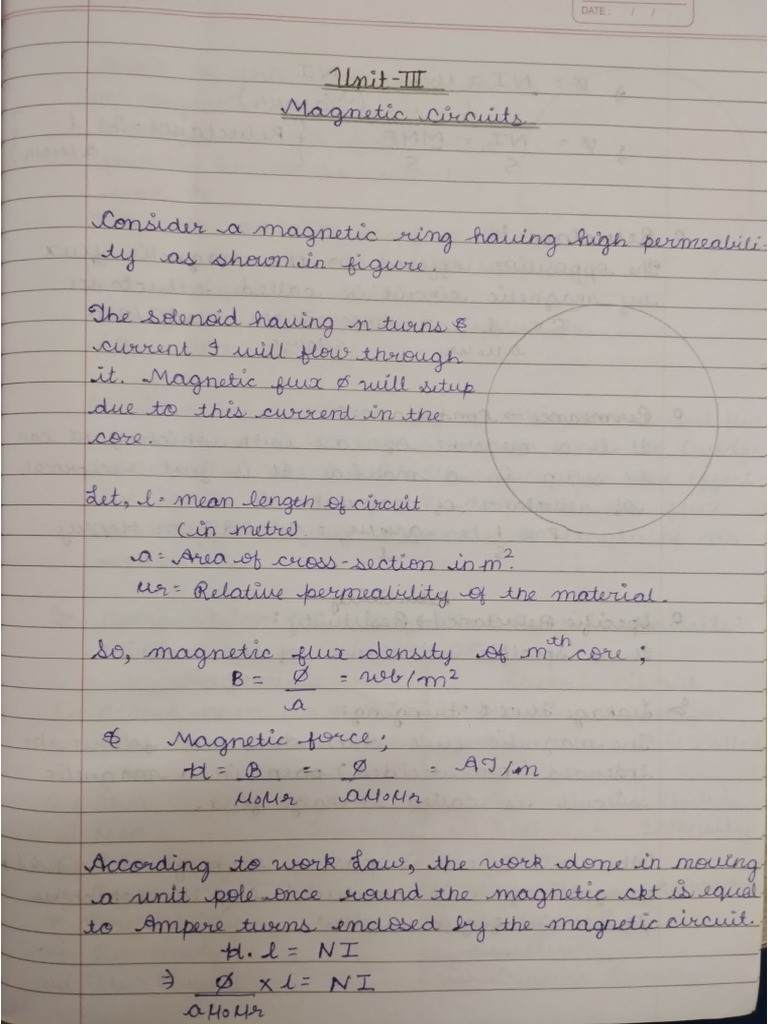 DATE: / /
Unit-III
Magnetic Circuits
Consider a magnetic ring having high permeabili-
ty as shown in figure.
The solenoid having n turns &
current I will flow through
it. Magnetic flux ϕ will setup
due to this current in the
core.
Let, l = mean length of circuit
(in metre)
a = Area of cross-section in m².
μr = Relative permeability of the material.
So, magnetic flux density of mth core;
B = ϕ/a = wb/m²
& Magnetic force;
H = B/μ0μr = ϕ/aμ0μr = AT/m
According to work Law, the work done in moving
a unit pole once round the magnetic ckt is equal
to Ampere turns enclosed by the magnetic circuit.
H. l = NI
⇒ ϕ/aμ0μr × l = NI